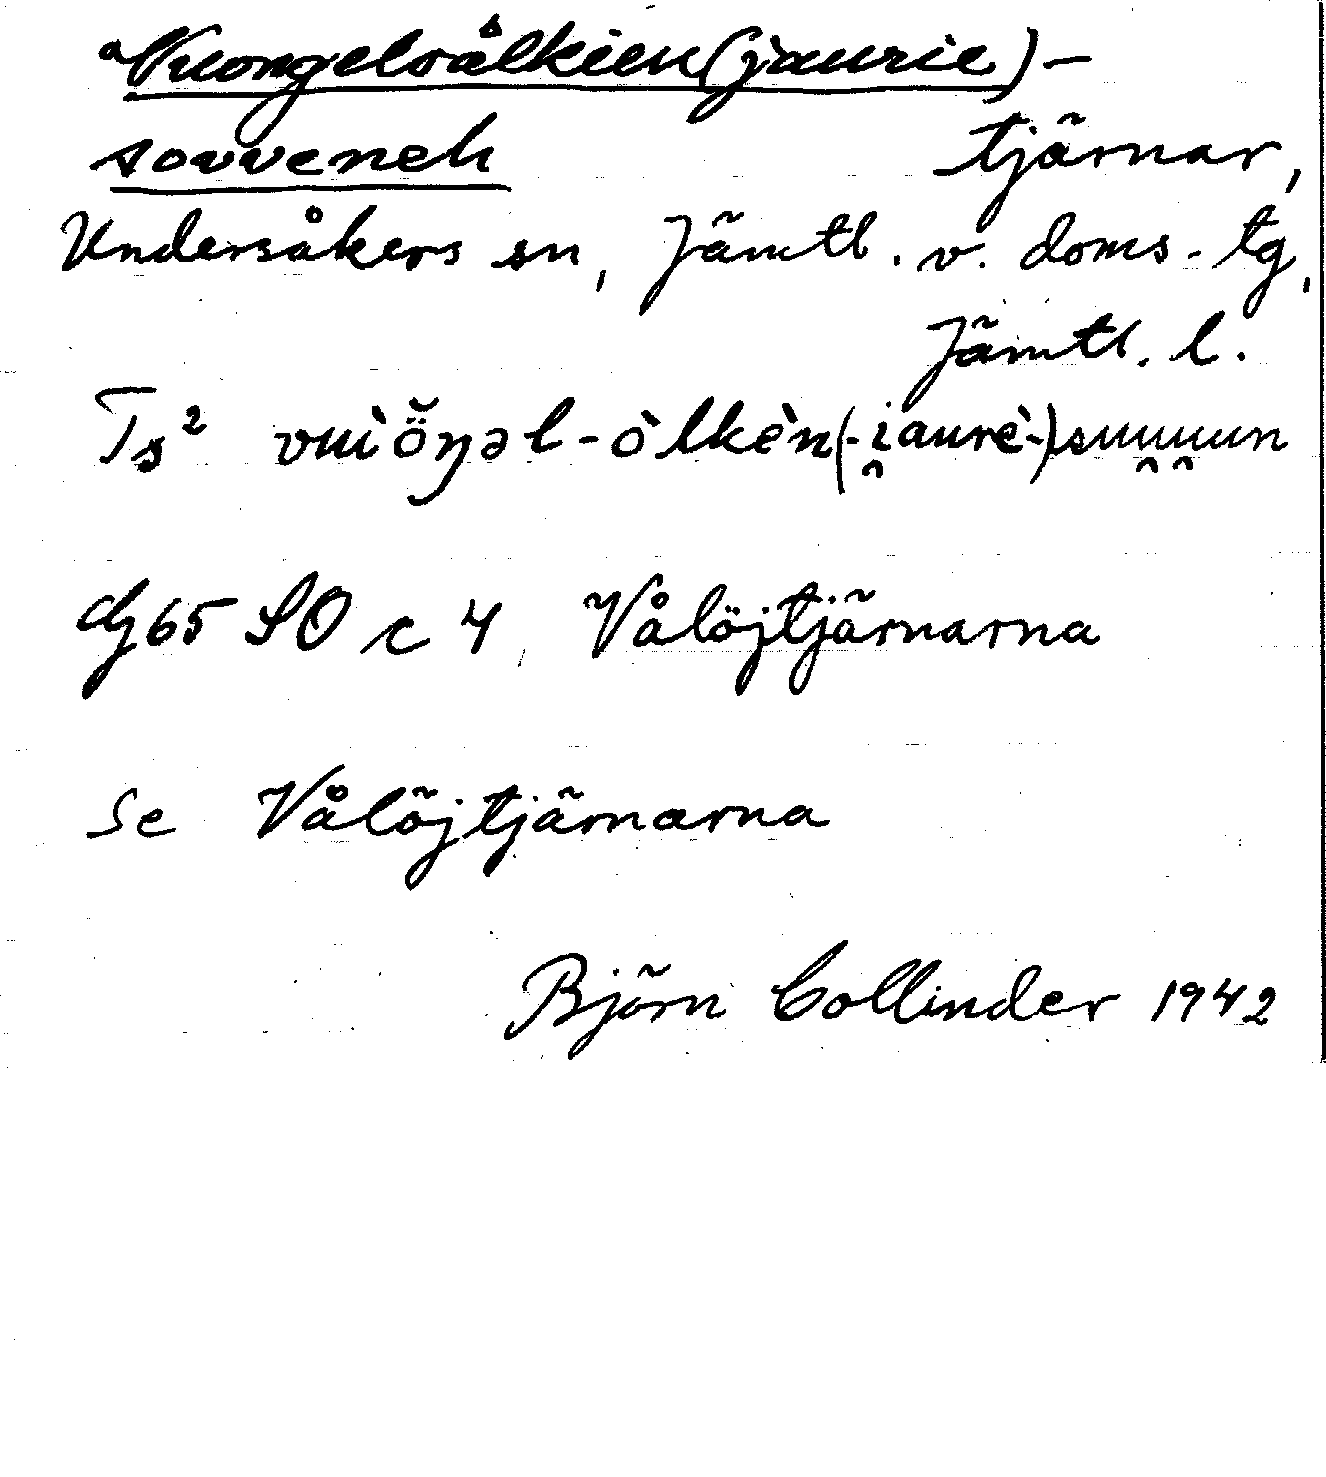 Vuongelvålkien(jaurie)-
sovveneh tjärnar,
Undersåkers sn, Jämtl. v. doms. tg,
Jämtl. l.
Ts²
G65 SO c 4 Vålöjtjärnarna
Se Vålöjtjärnarna
Björn Collinder 1942